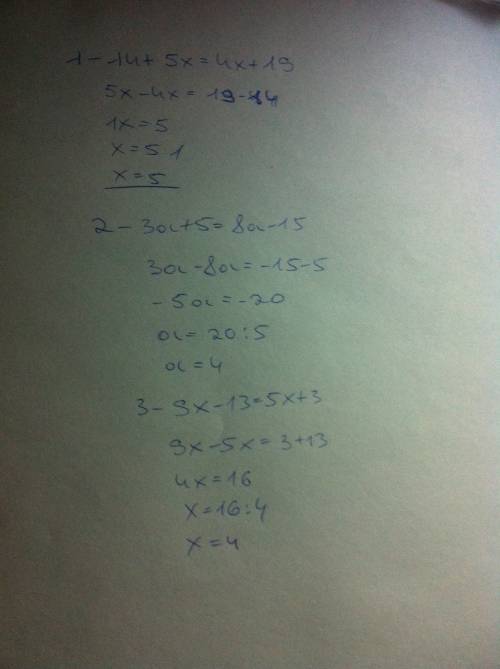 1 - 14 + 5x = 4x + 19
5x - 4x = 19 - 14
1x = 5
x = 5 1
x = 5
2 - 3a + 5 = 8a - 15
3a - 8a = -15 - 5
- 5a = -20
a = 20 : 5
a = 4
3 - 9x - 13 = 5x + 3
9x - 5x = 3 + 13
4x = 16
x = 16 : 4
x = 4